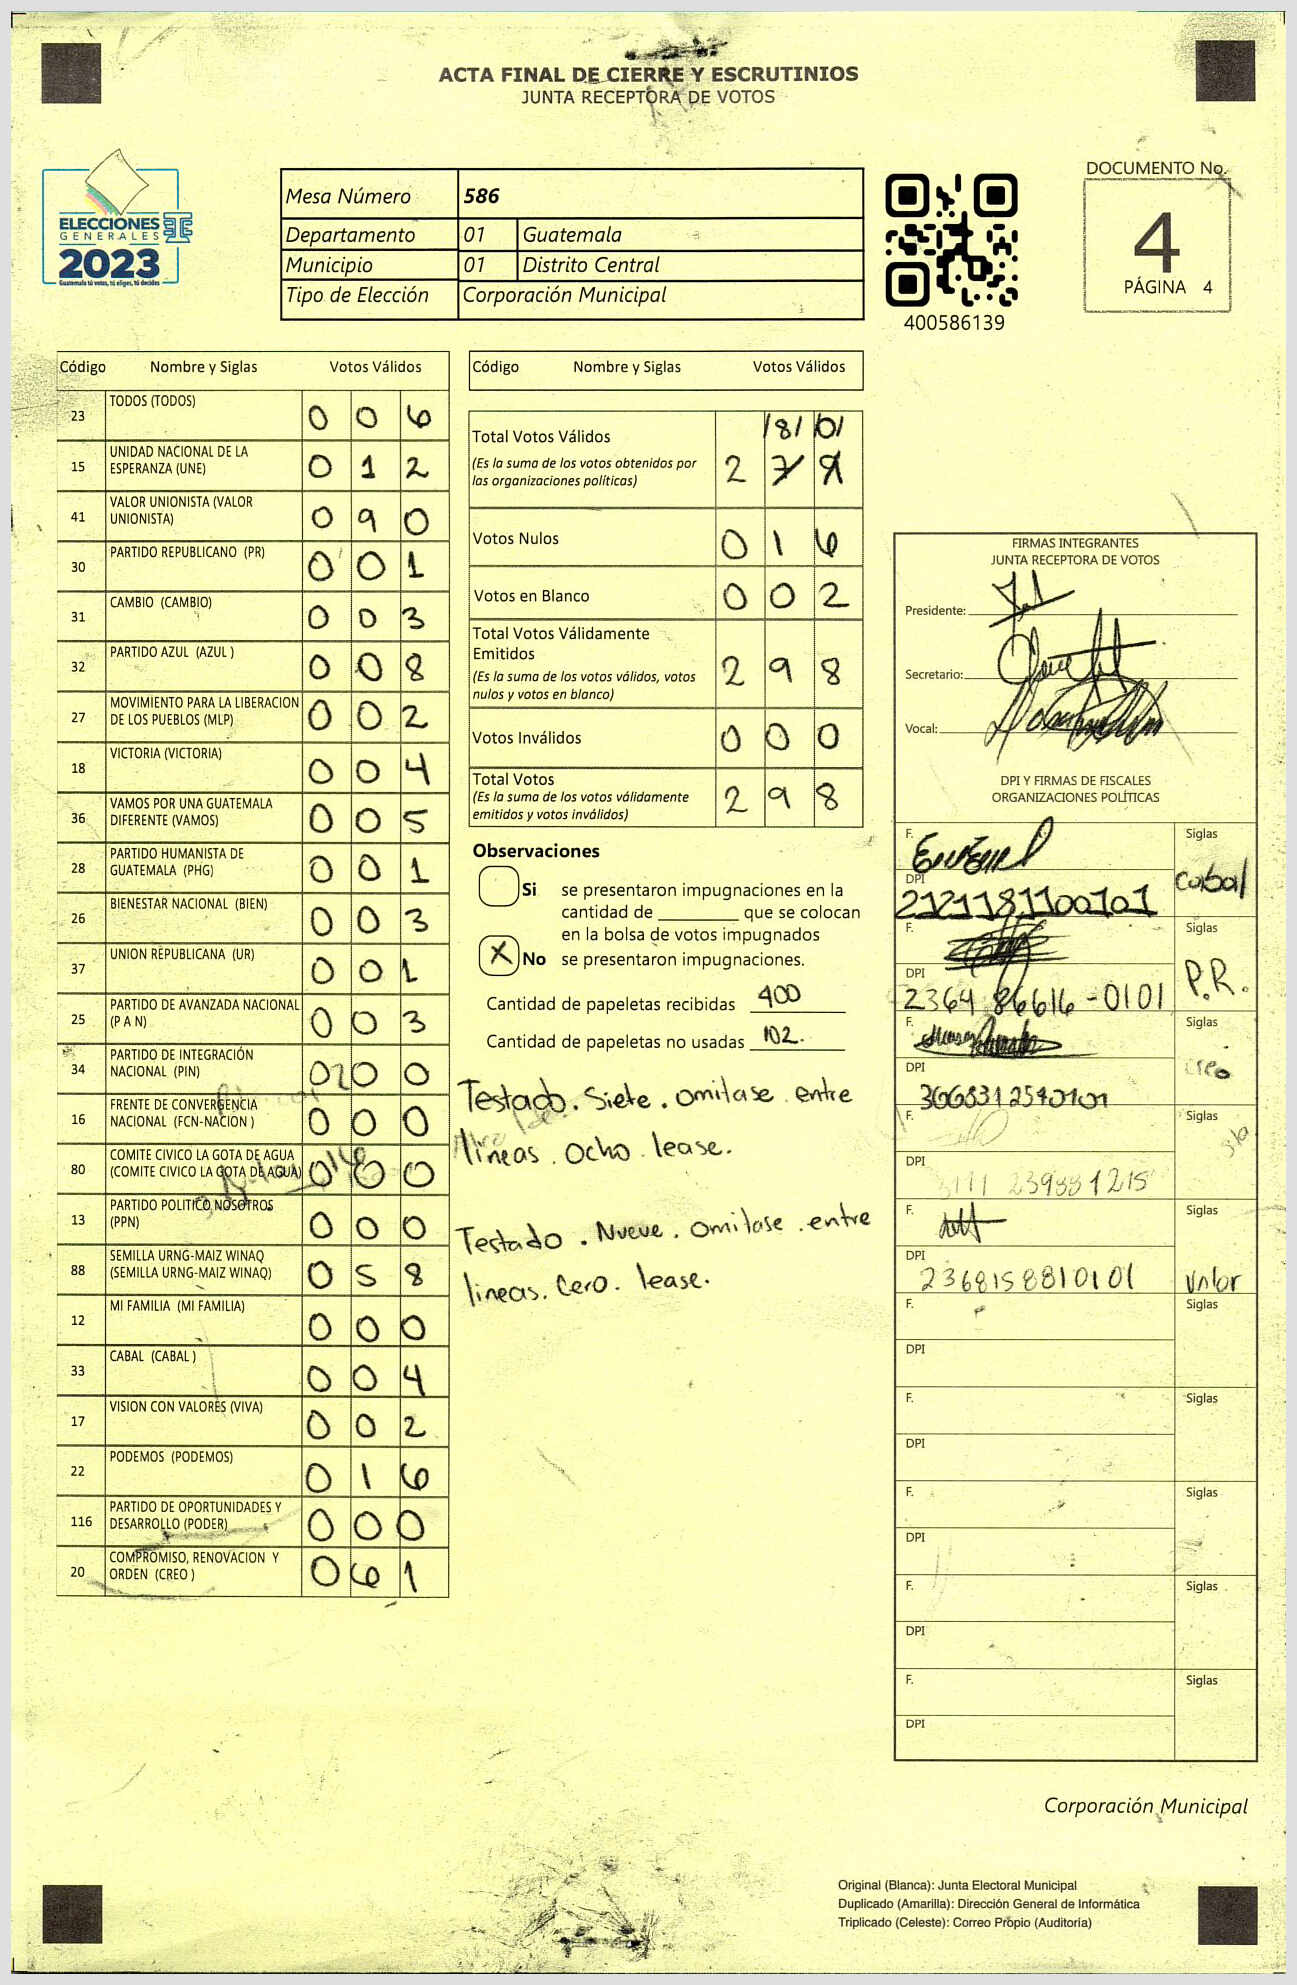 ACTA FINAL DE CIERRE Y ESCRUTINIOS
JUNTA RECEPTORA DE VOTOS
ELECCIONES
GENERALES
2023
Guatemala tú votas, tú eliges, tú decides
Mesa Número 586
Departamento 01 Guatemala
Municipio 01 Distrito Central
Tipo de Elección Corporación Municipal
400586139
DOCUMENTO No.
4
PÁGINA 4
Código Nombre y Siglas Votos Válidos
23 TODOS (TODOS) 0 0 6
15 UNIDAD NACIONAL DE LA ESPERANZA (UNE) 0 1 2
41 VALOR UNIONISTA (VALOR UNIONISTA) 0 9 0
30 PARTIDO REPUBLICANO (PR) 0 0 1
31 CAMBIO (CAMBIO) 0 0 3
32 PARTIDO AZUL (AZUL ) 0 0 8
27 MOVIMIENTO PARA LA LIBERACION DE LOS PUEBLOS (MLP) 0 0 2
18 VICTORIA (VICTORIA) 0 0 4
36 VAMOS POR UNA GUATEMALA DIFERENTE (VAMOS) 0 0 5
28 PARTIDO HUMANISTA DE GUATEMALA (PHG) 0 0 1
26 BIENESTAR NACIONAL (BIEN) 0 0 3
37 UNION REPUBLICANA (UR) 0 0 1
25 PARTIDO DE AVANZADA NACIONAL (P A N) 0 0 3
34 PARTIDO DE INTEGRACIÓN NACIONAL (PIN) 0 0 0
16 FRENTE DE CONVERGENCIA NACIONAL (FCN-NACION ) 0 0 0
80 COMITE CIVICO LA GOTA DE AGUA (COMITE CIVICO LA GOTA DE AGUA) 0 0 0
13 PARTIDO POLITICO NOSOTROS (PPN) 0 0 0
88 SEMILLA URNG-MAIZ WINAQ (SEMILLA URNG-MAIZ WINAQ) 0 5 8
12 MI FAMILIA (MI FAMILIA) 0 0 0
33 CABAL (CABAL ) 0 0 4
17 VISION CON VALORES (VIVA) 0 0 2
22 PODEMOS (PODEMOS) 0 1 6
116 PARTIDO DE OPORTUNIDADES Y DESARROLLO (PODER) 0 0 0
20 COMPROMISO, RENOVACION Y ORDEN (CREO ) 0 6 1
Código Nombre y Siglas Votos Válidos
Total Votos Válidos /8/ /0/
(Es la suma de los votos obtenidos por las organizaciones políticas) 2 7 9
Votos Nulos 0 1 6
Votos en Blanco 0 0 2
Total Votos Válidamente Emitidos
(Es la suma de los votos válidos, votos nulos y votos en blanco) 2 9 8
Votos Inválidos 0 0 0
Total Votos
(Es la suma de los votos válidamente emitidos y votos inválidos) 2 9 8
Observaciones
Si se presentaron impugnaciones en la
cantidad de ________ que se colocan
en la bolsa de votos impugnados
X No se presentaron impugnaciones.
Cantidad de papeletas recibidas 400
Cantidad de papeletas no usadas 102.
Testado. Siete. omitase entre
líneas. Ocho. lease.
Testado. Nueve. omitase. entre
lineas. Cero. lease.
FIRMAS INTEGRANTES
JUNTA RECEPTORA DE VOTOS
Presidente:
Secretario:
Vocal:
DPI Y FIRMAS DE FISCALES
ORGANIZACIONES POLÍTICAS
F. Siglas
cabal
DPI
2121181100101
F. Siglas
P.R.
DPI
2364 86616-0101
F. Siglas
creo
DPI
3668312540101
F. Siglas
DPI
F. Siglas
DPI
2368158810101 Valor
F. Siglas
DPI
F. Siglas
DPI
F. Siglas
DPI
F. Siglas
DPI
F. Siglas
DPI
Corporación Municipal
Original (Blanca): Junta Electoral Municipal
Duplicado (Amarilla): Dirección General de Informática
Triplicado (Celeste): Correo Propio (Auditoría)